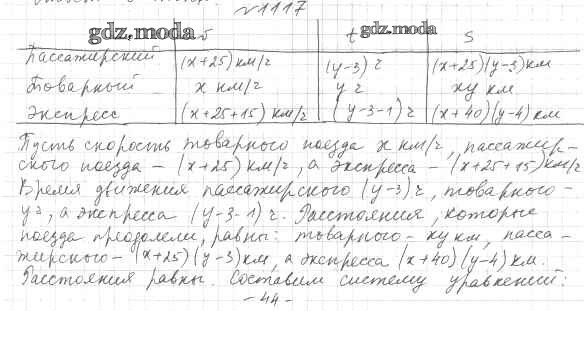 №1117
gdz.moda v t gdz.moda s
Пассажирский (x+25) км/г (y-3) г (x+25)(y-3) км
Товарный x км/г y г xy км
Экспресс (x+25+15) км/г (y-3-1) г (x+40)(y-4) км
Пусть скорость товарного поезда x км/г, пассажир-
ского поезда - (x+25) км/г, а экспресса - (x+25+15) км/г
Время движения пассажирского (y-3) г, товарного -
y г, а экспресса (y-3-1) г. Расстояния, которые
поезда преодолели, равны: товарного - xy км, пасса-
жирского - (x+25)(y-3) км, а экспресса (x+40)(y-4) км.
Расстояния равны. Составим систему уравнений:
-44-